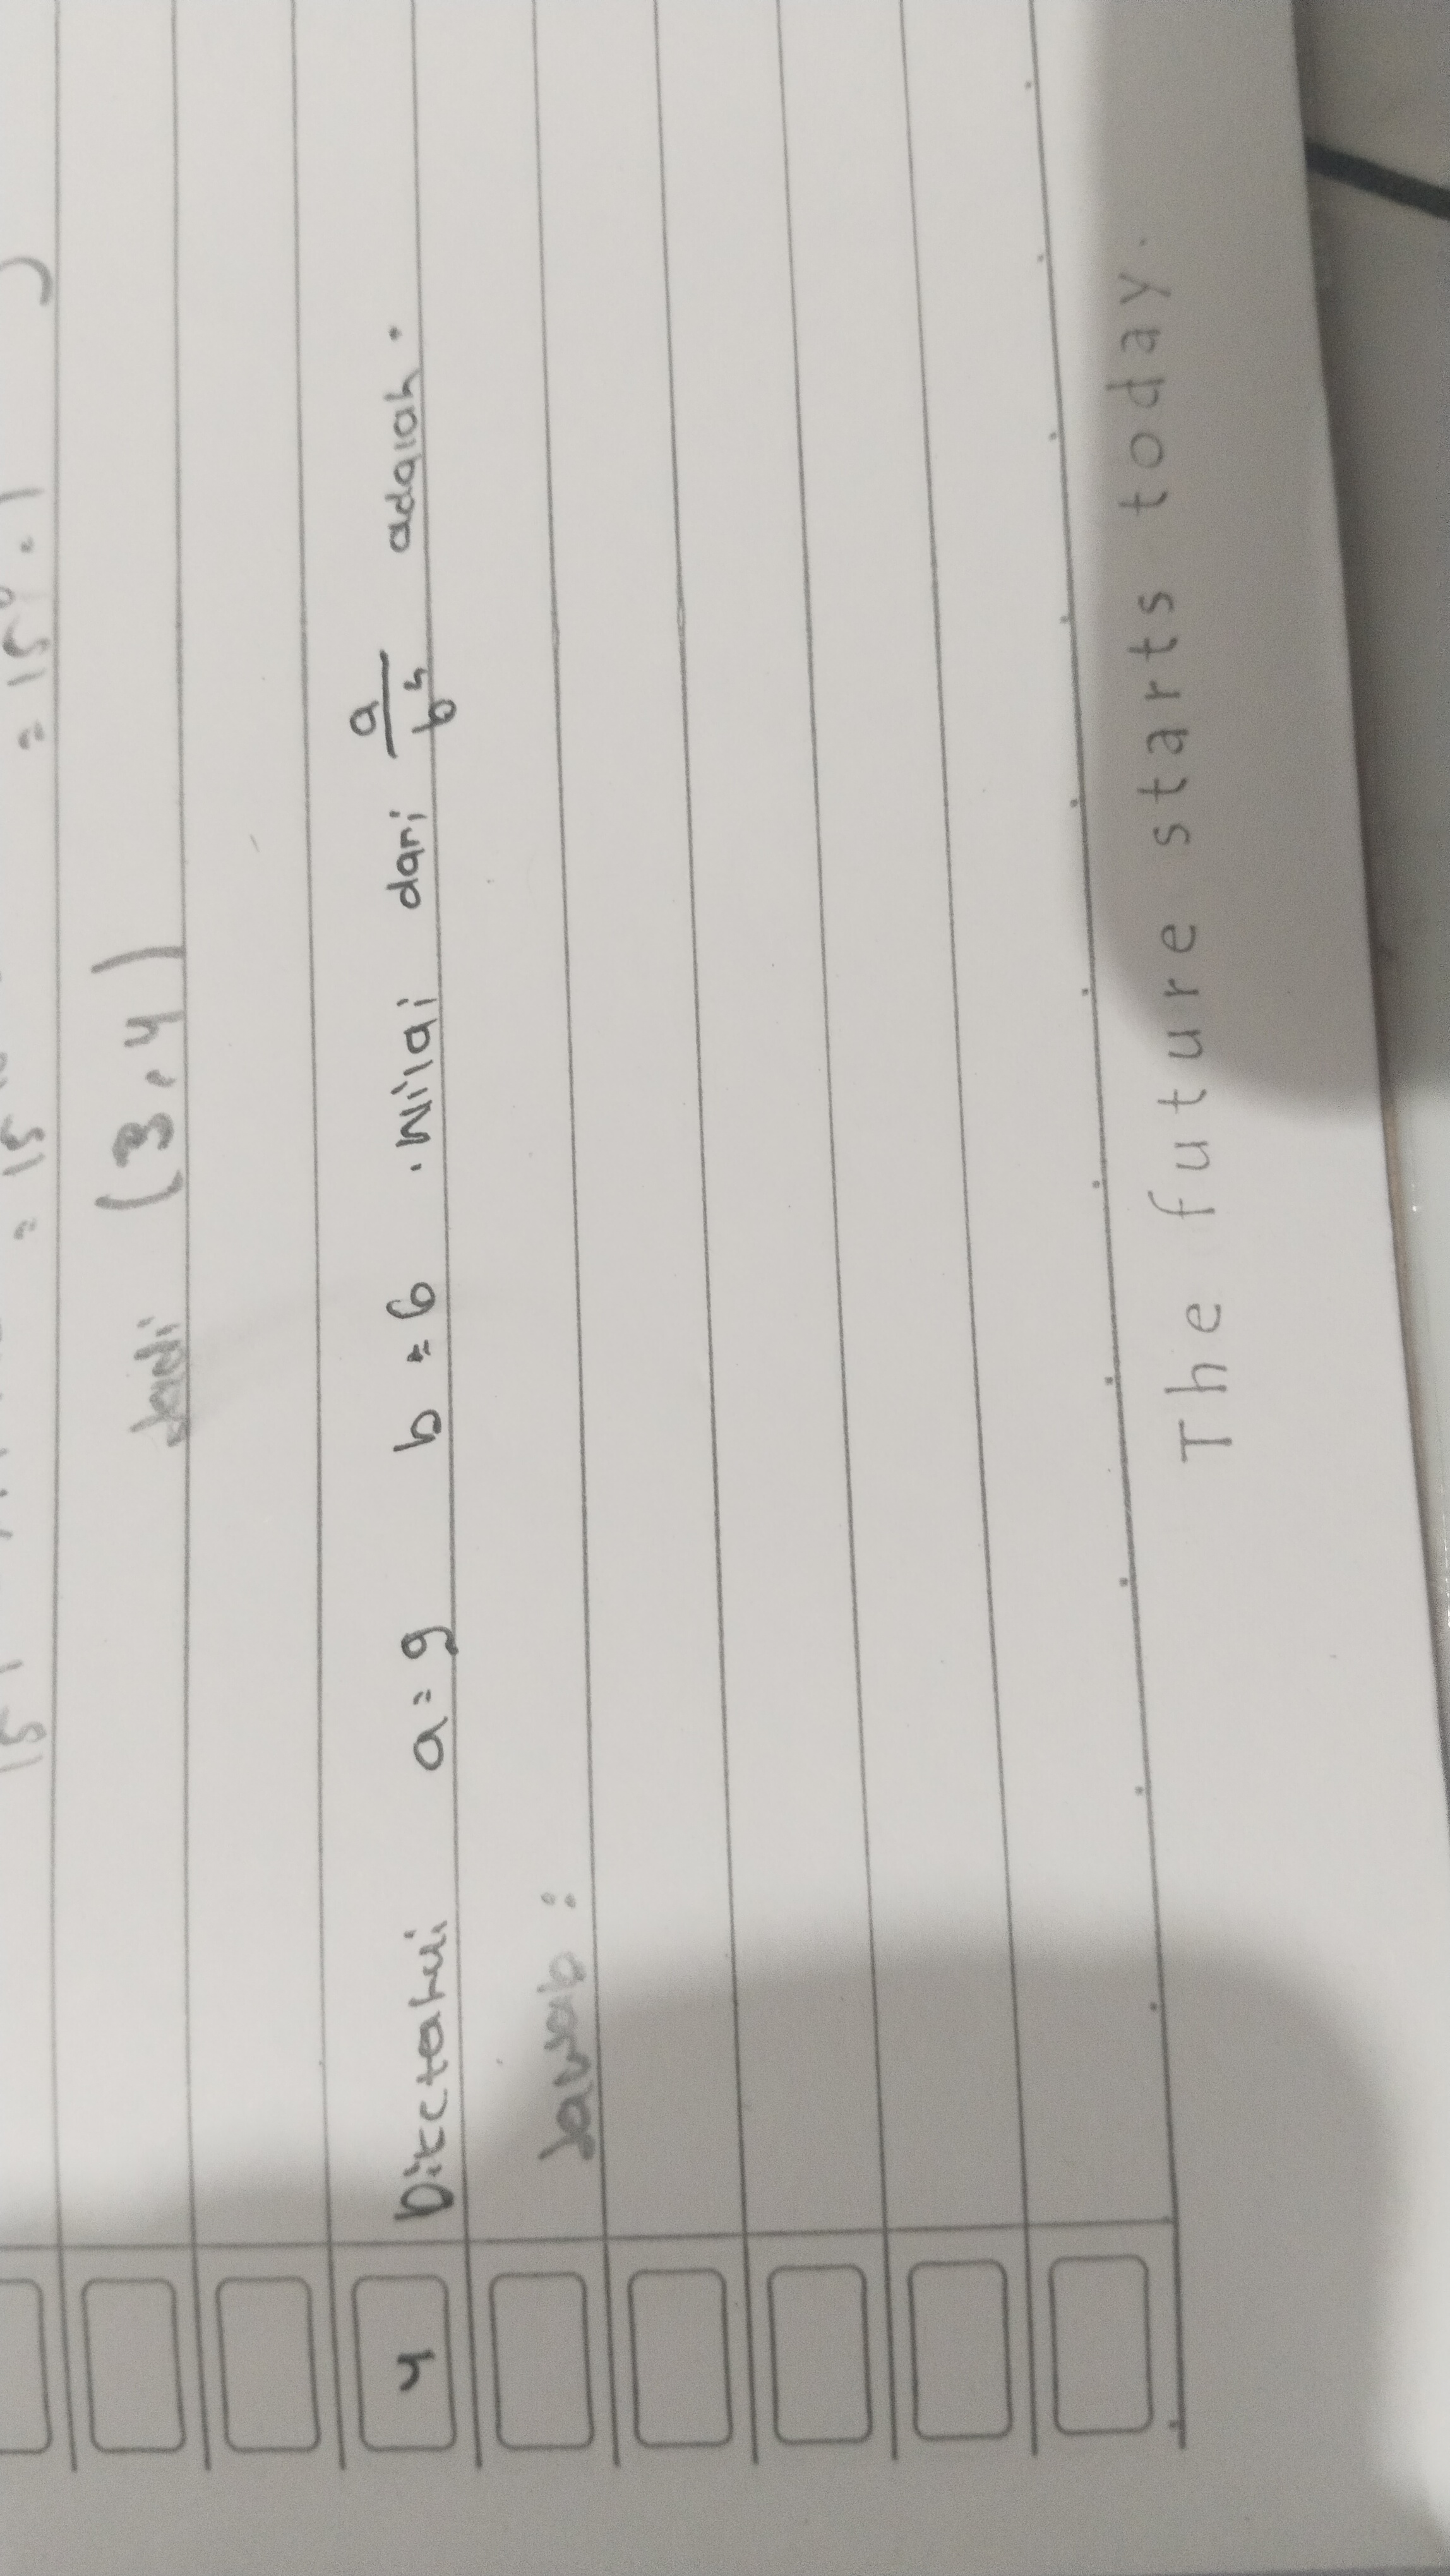 = 15⁰ . 1 )
Jadi (3,4)
4 Diketahui a = 9 b = 6 . Nilai dari a/b⁴ adalah .
Jawab :
The future starts today.